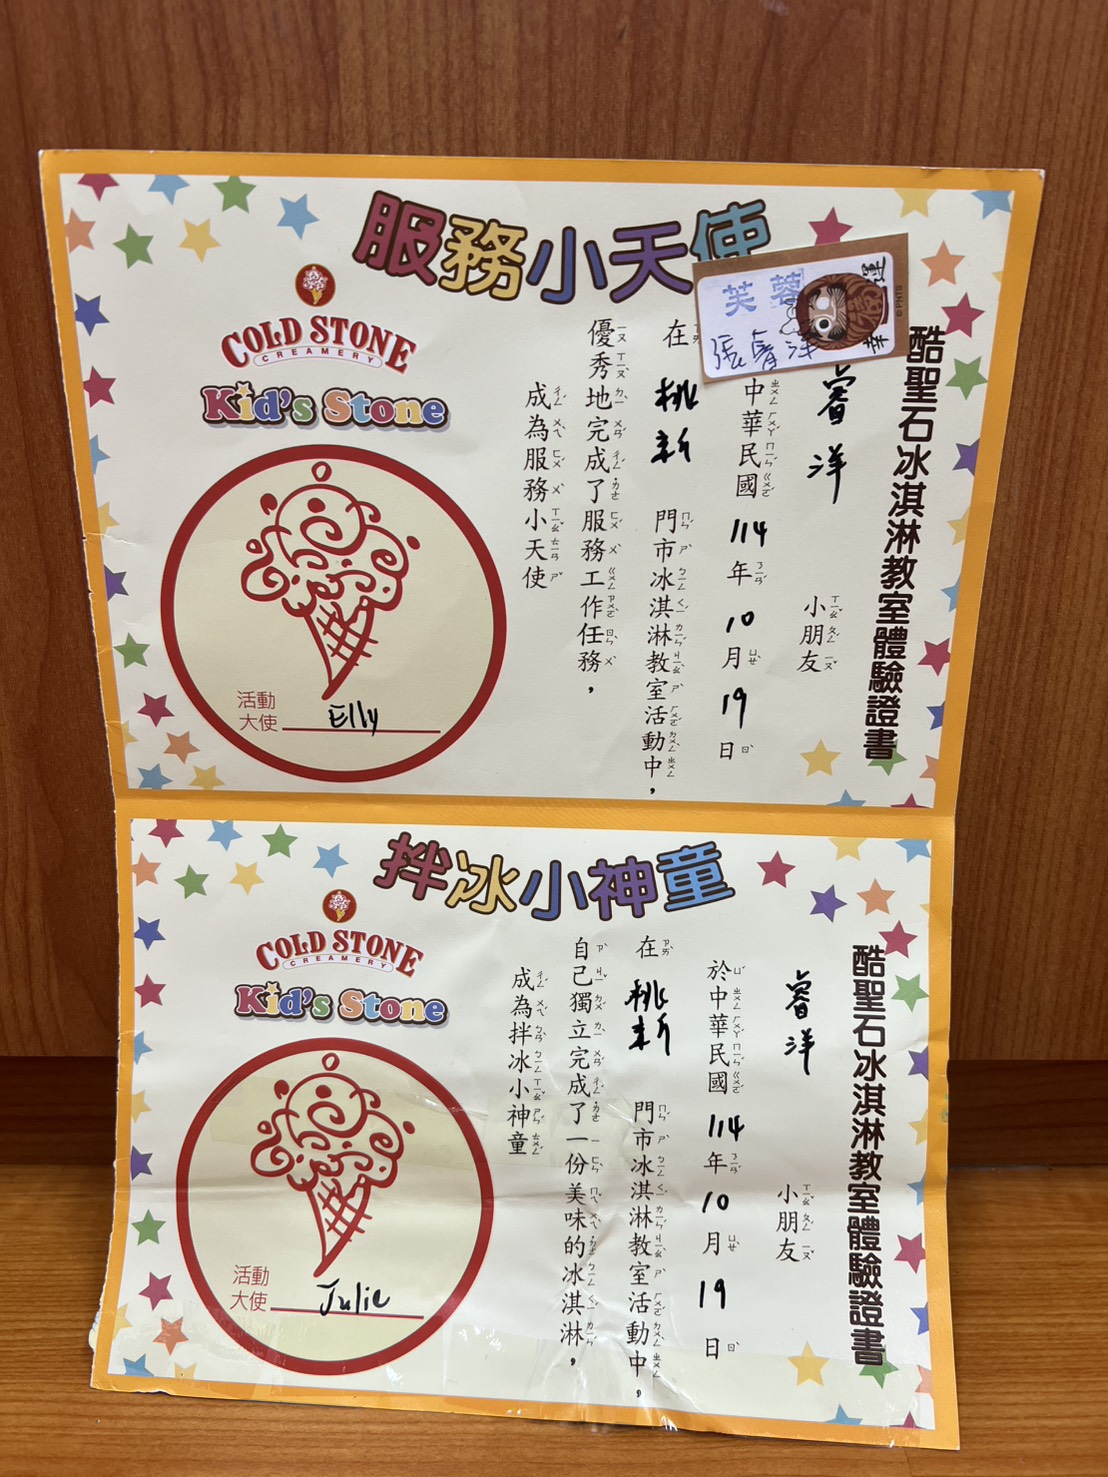 服務小天使
芙蓉
張睿洋
COLD STONE
CREAMERY
Kid's Stone
酷聖石冰淇淋教室體驗證書
睿洋 小朋友
中華民國114年10月19日
在桃新門市冰淇淋教室活動中，
優秀地完成了服務工作任務，
成為服務小天使
活動
大使 Elly
拌冰小神童
COLD STONE
CREAMERY
Kid's Stone
酷聖石冰淇淋教室體驗證書
睿洋 小朋友
於中華民國114年10月19日
在桃新門市冰淇淋教室活動中，
自己獨立完成了一份美味的冰淇淋，
成為拌冰小神童
活動
大使 Julie